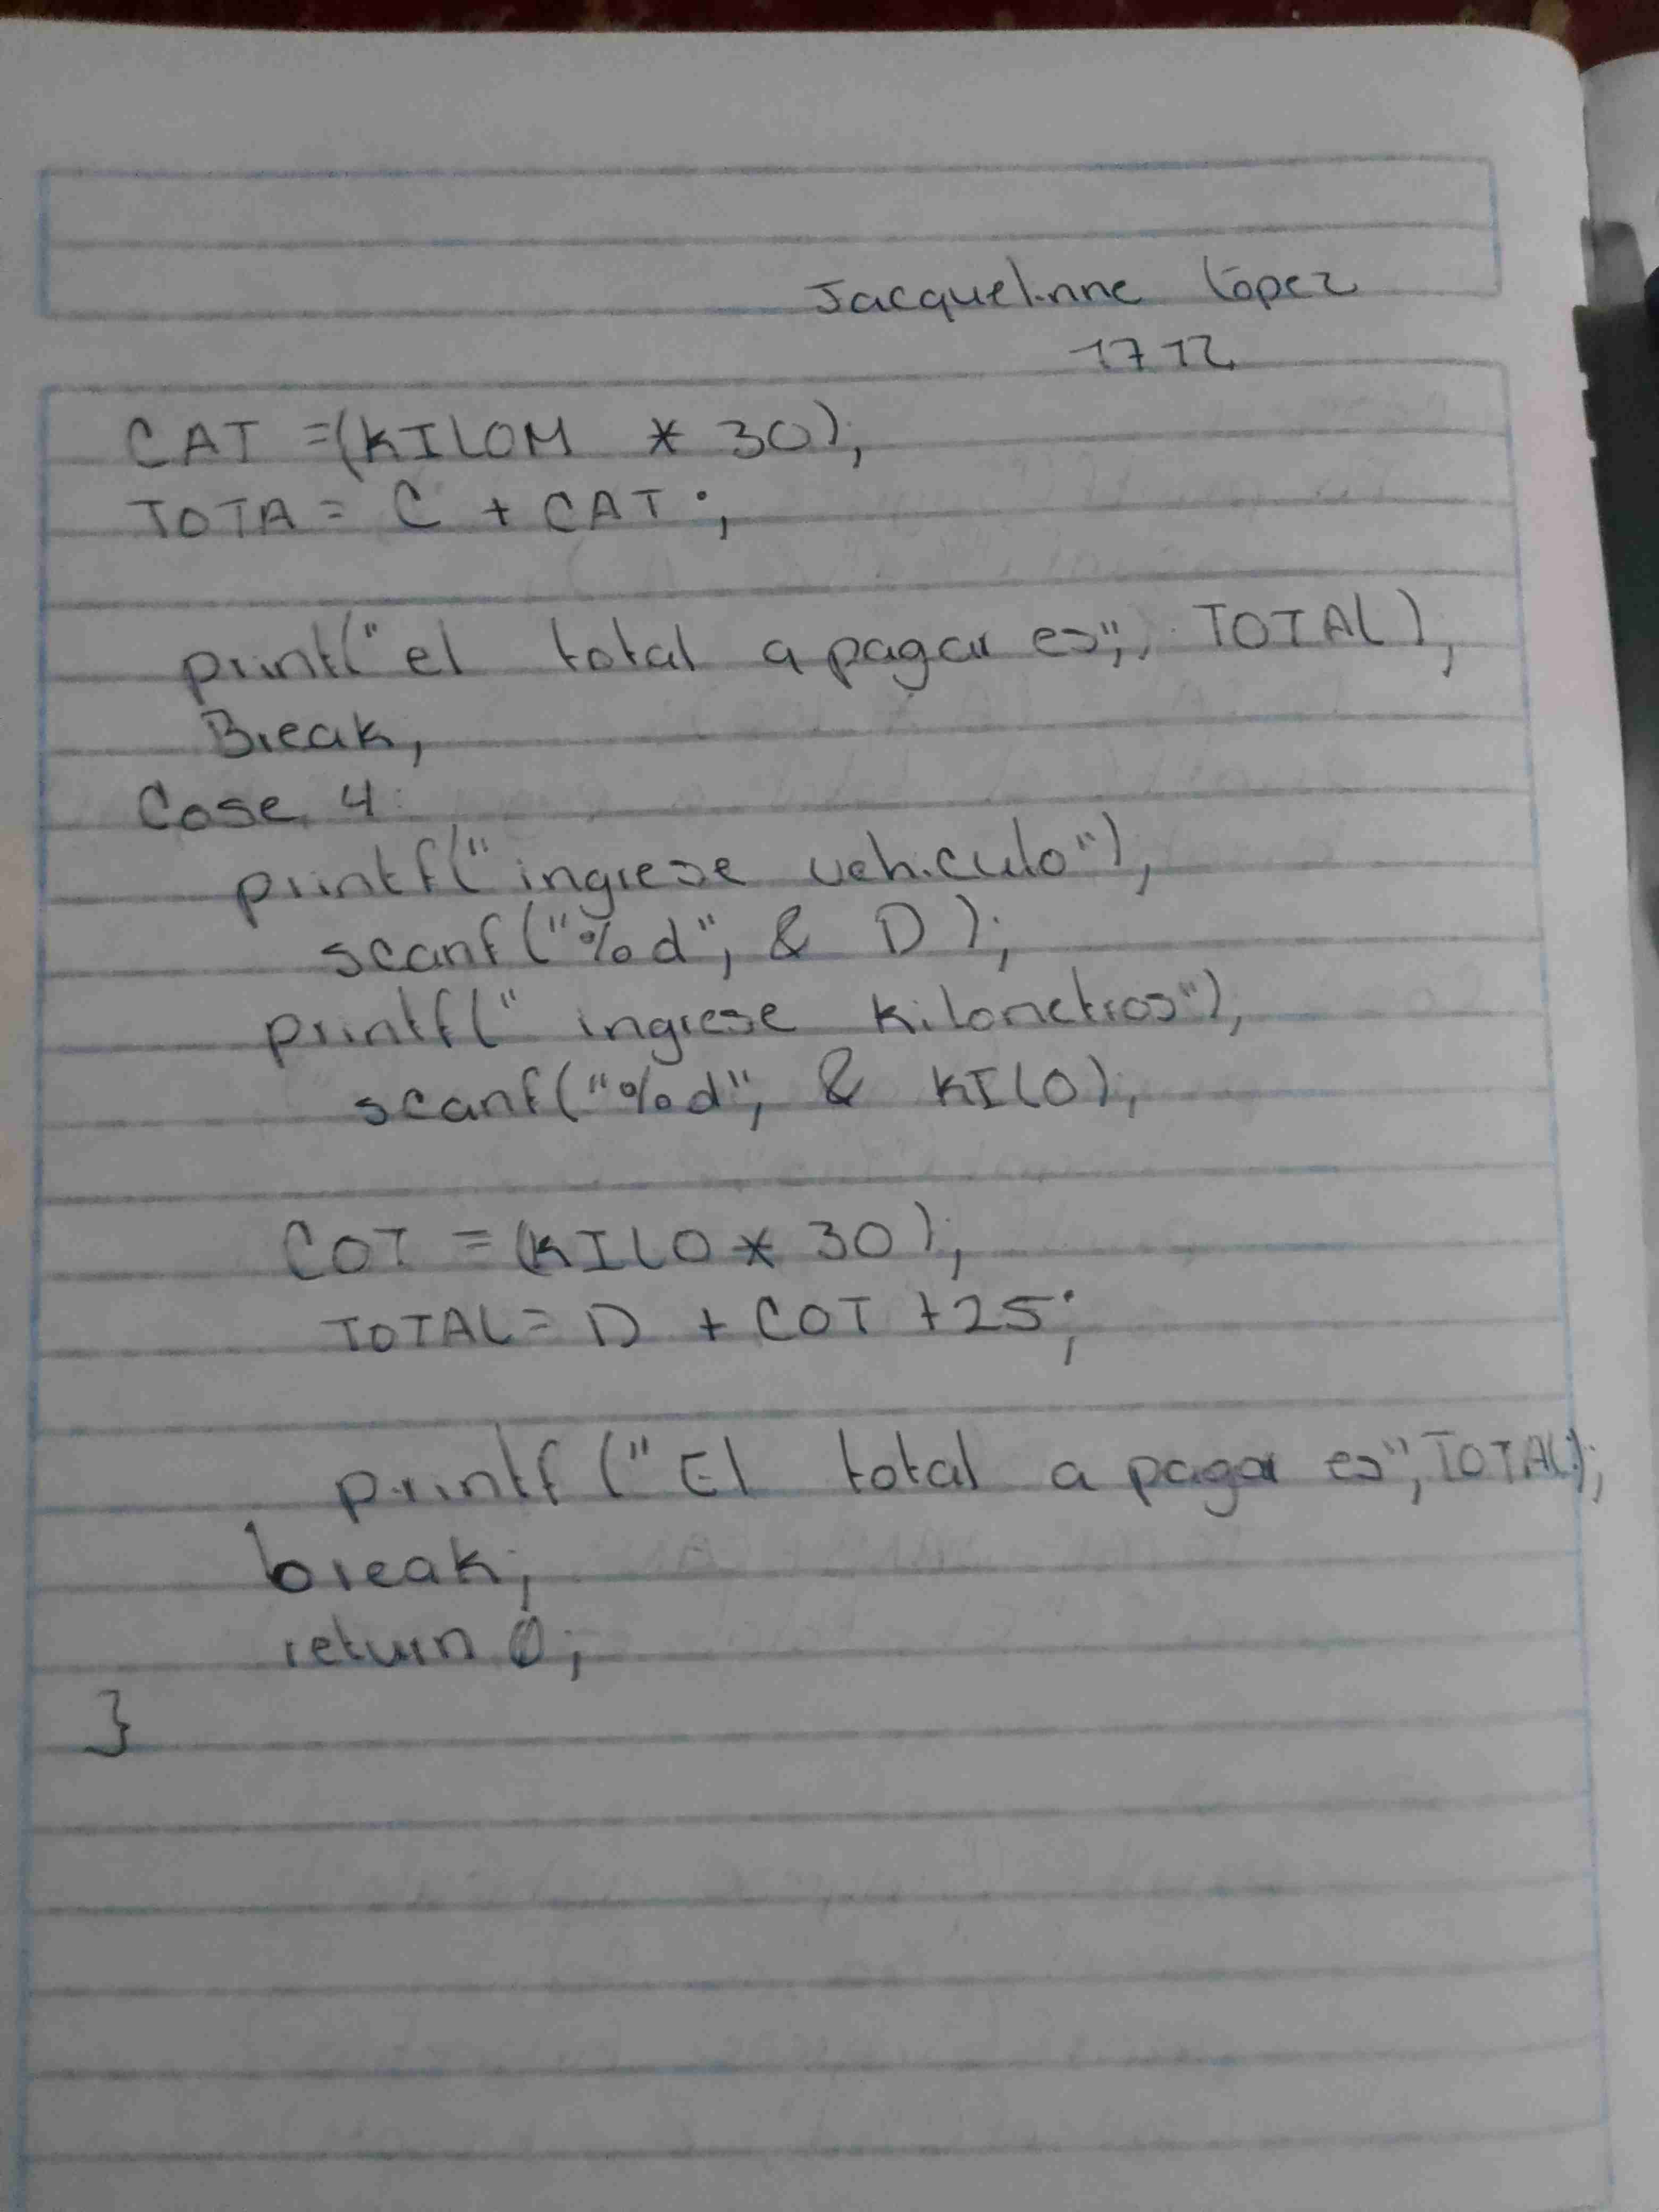 Jacquelinne López
1712
CAT =(KILOM * 30);
TOTA = C + CAT ;
print("el total a pagar es", TOTAL),
Break,
Case 4:
printf("ingrese vehiculo"),
scanf("%d", & D );
printf(" ingrese kilometros"),
scanf("%d", & KILO);
COT = (KILO * 30);
TOTAL= D + COT +25;
printf ("El total a pagar es", TOTAL);
break;
return 0;
}